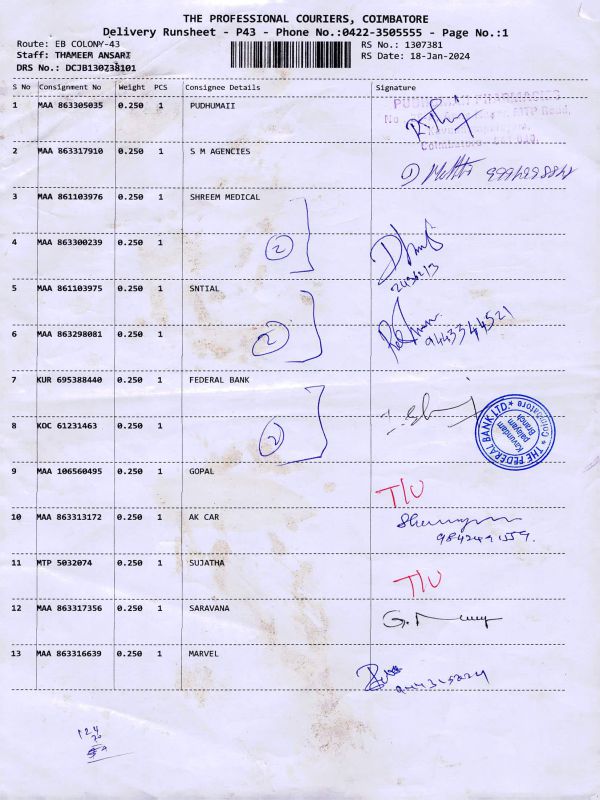 THE PROFESSIONAL COURIERS, COIMBATORE
Delivery Runsheet - P43 - Phone No.:0422-3505555 - Page No.:1
Route: EB COLONY-43 RS No.: 1307381
Staff: THAMEEM ANSARI RS Date: 18-Jan-2024
DRS No.: DCJB130738101
S No Consignment No Weight PCS Consignee Details Signature
1 MAA 863305035 0.250 1 PUDHUMAII
2 MAA 863317910 0.250 1 S M AGENCIES
3 MAA 861103976 0.250 1 SHREEM MEDICAL
4 MAA 863300239 0.250 1 2
5 MAA 861103975 0.250 1 SNTIAL
6 MAA 863298081 0.250 1 2 9443344521
7 KUR 695388440 0.250 1 FEDERAL BANK
8 KOC 61231463 0.250 1 2
THE FEDERAL BANK LTD. Coimbatore
Branch
9 MAA 106560495 0.250 1 GOPAL T/U
10 MAA 863313172 0.250 1 AK CAR
11 MTP 5032074 0.250 1 SUJATHA T/U
12 MAA 863317356 0.250 1 SARAVANA
13 MAA 863316639 0.250 1 MARVEL